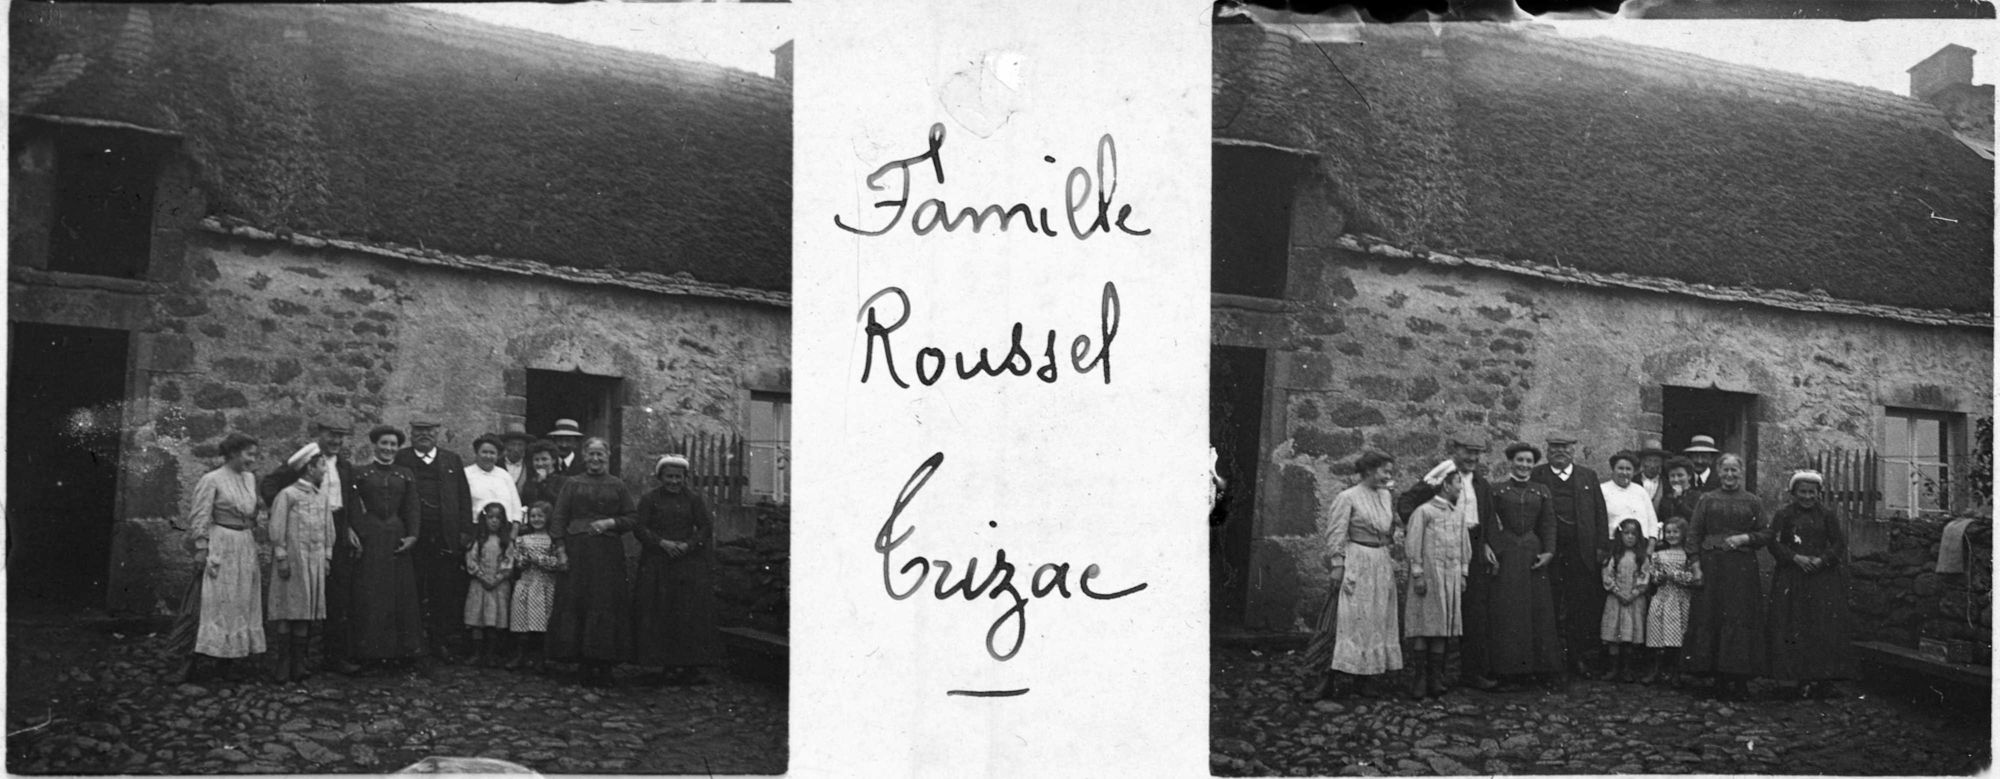 Famille
Roussel
Trizac